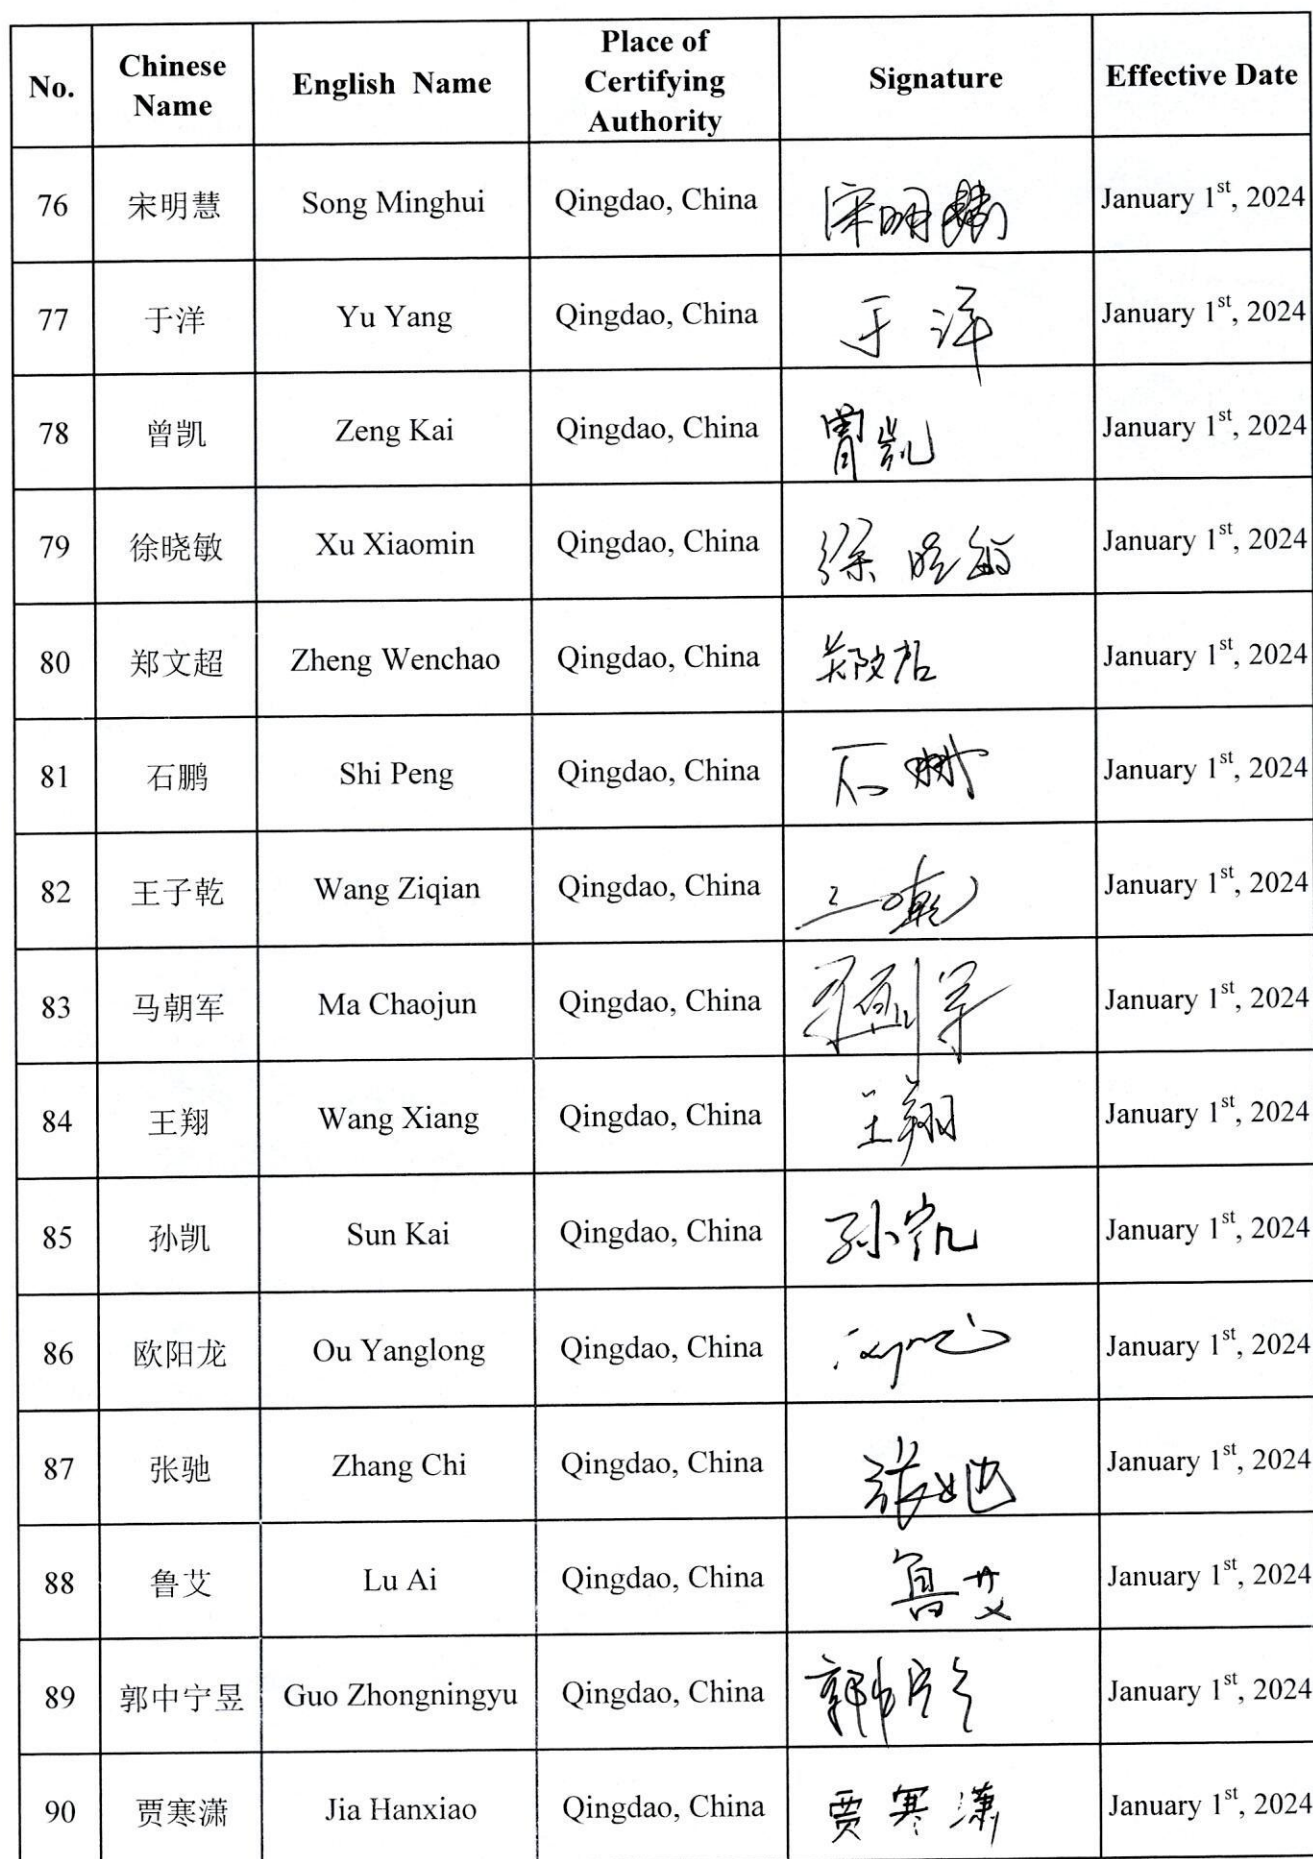 No. Chinese Name English Name Place of Certifying Authority Signature Effective Date
76 宋明慧 Song Minghui Qingdao, China 宋明慧 January 1st, 2024
77 于洋 Yu Yang Qingdao, China 于洋 January 1st, 2024
78 曾凯 Zeng Kai Qingdao, China 曾凯 January 1st, 2024
79 徐晓敏 Xu Xiaomin Qingdao, China 徐晓敏 January 1st, 2024
80 郑文超 Zheng Wenchao Qingdao, China 郑文超 January 1st, 2024
81 石鹏 Shi Peng Qingdao, China 石鹏 January 1st, 2024
82 王子乾 Wang Ziqian Qingdao, China 王子乾 January 1st, 2024
83 马朝军 Ma Chaojun Qingdao, China January 1st, 2024
84 王翔 Wang Xiang Qingdao, China 王翔 January 1st, 2024
85 孙凯 Sun Kai Qingdao, China 孙凯 January 1st, 2024
86 欧阳龙 Ou Yanglong Qingdao, China January 1st, 2024
87 张驰 Zhang Chi Qingdao, China 张驰 January 1st, 2024
88 鲁艾 Lu Ai Qingdao, China 鲁艾 January 1st, 2024
89 郭中宁昱 Guo Zhongningyu Qingdao, China January 1st, 2024
90 贾寒潇 Jia Hanxiao Qingdao, China 贾寒潇 January 1st, 2024